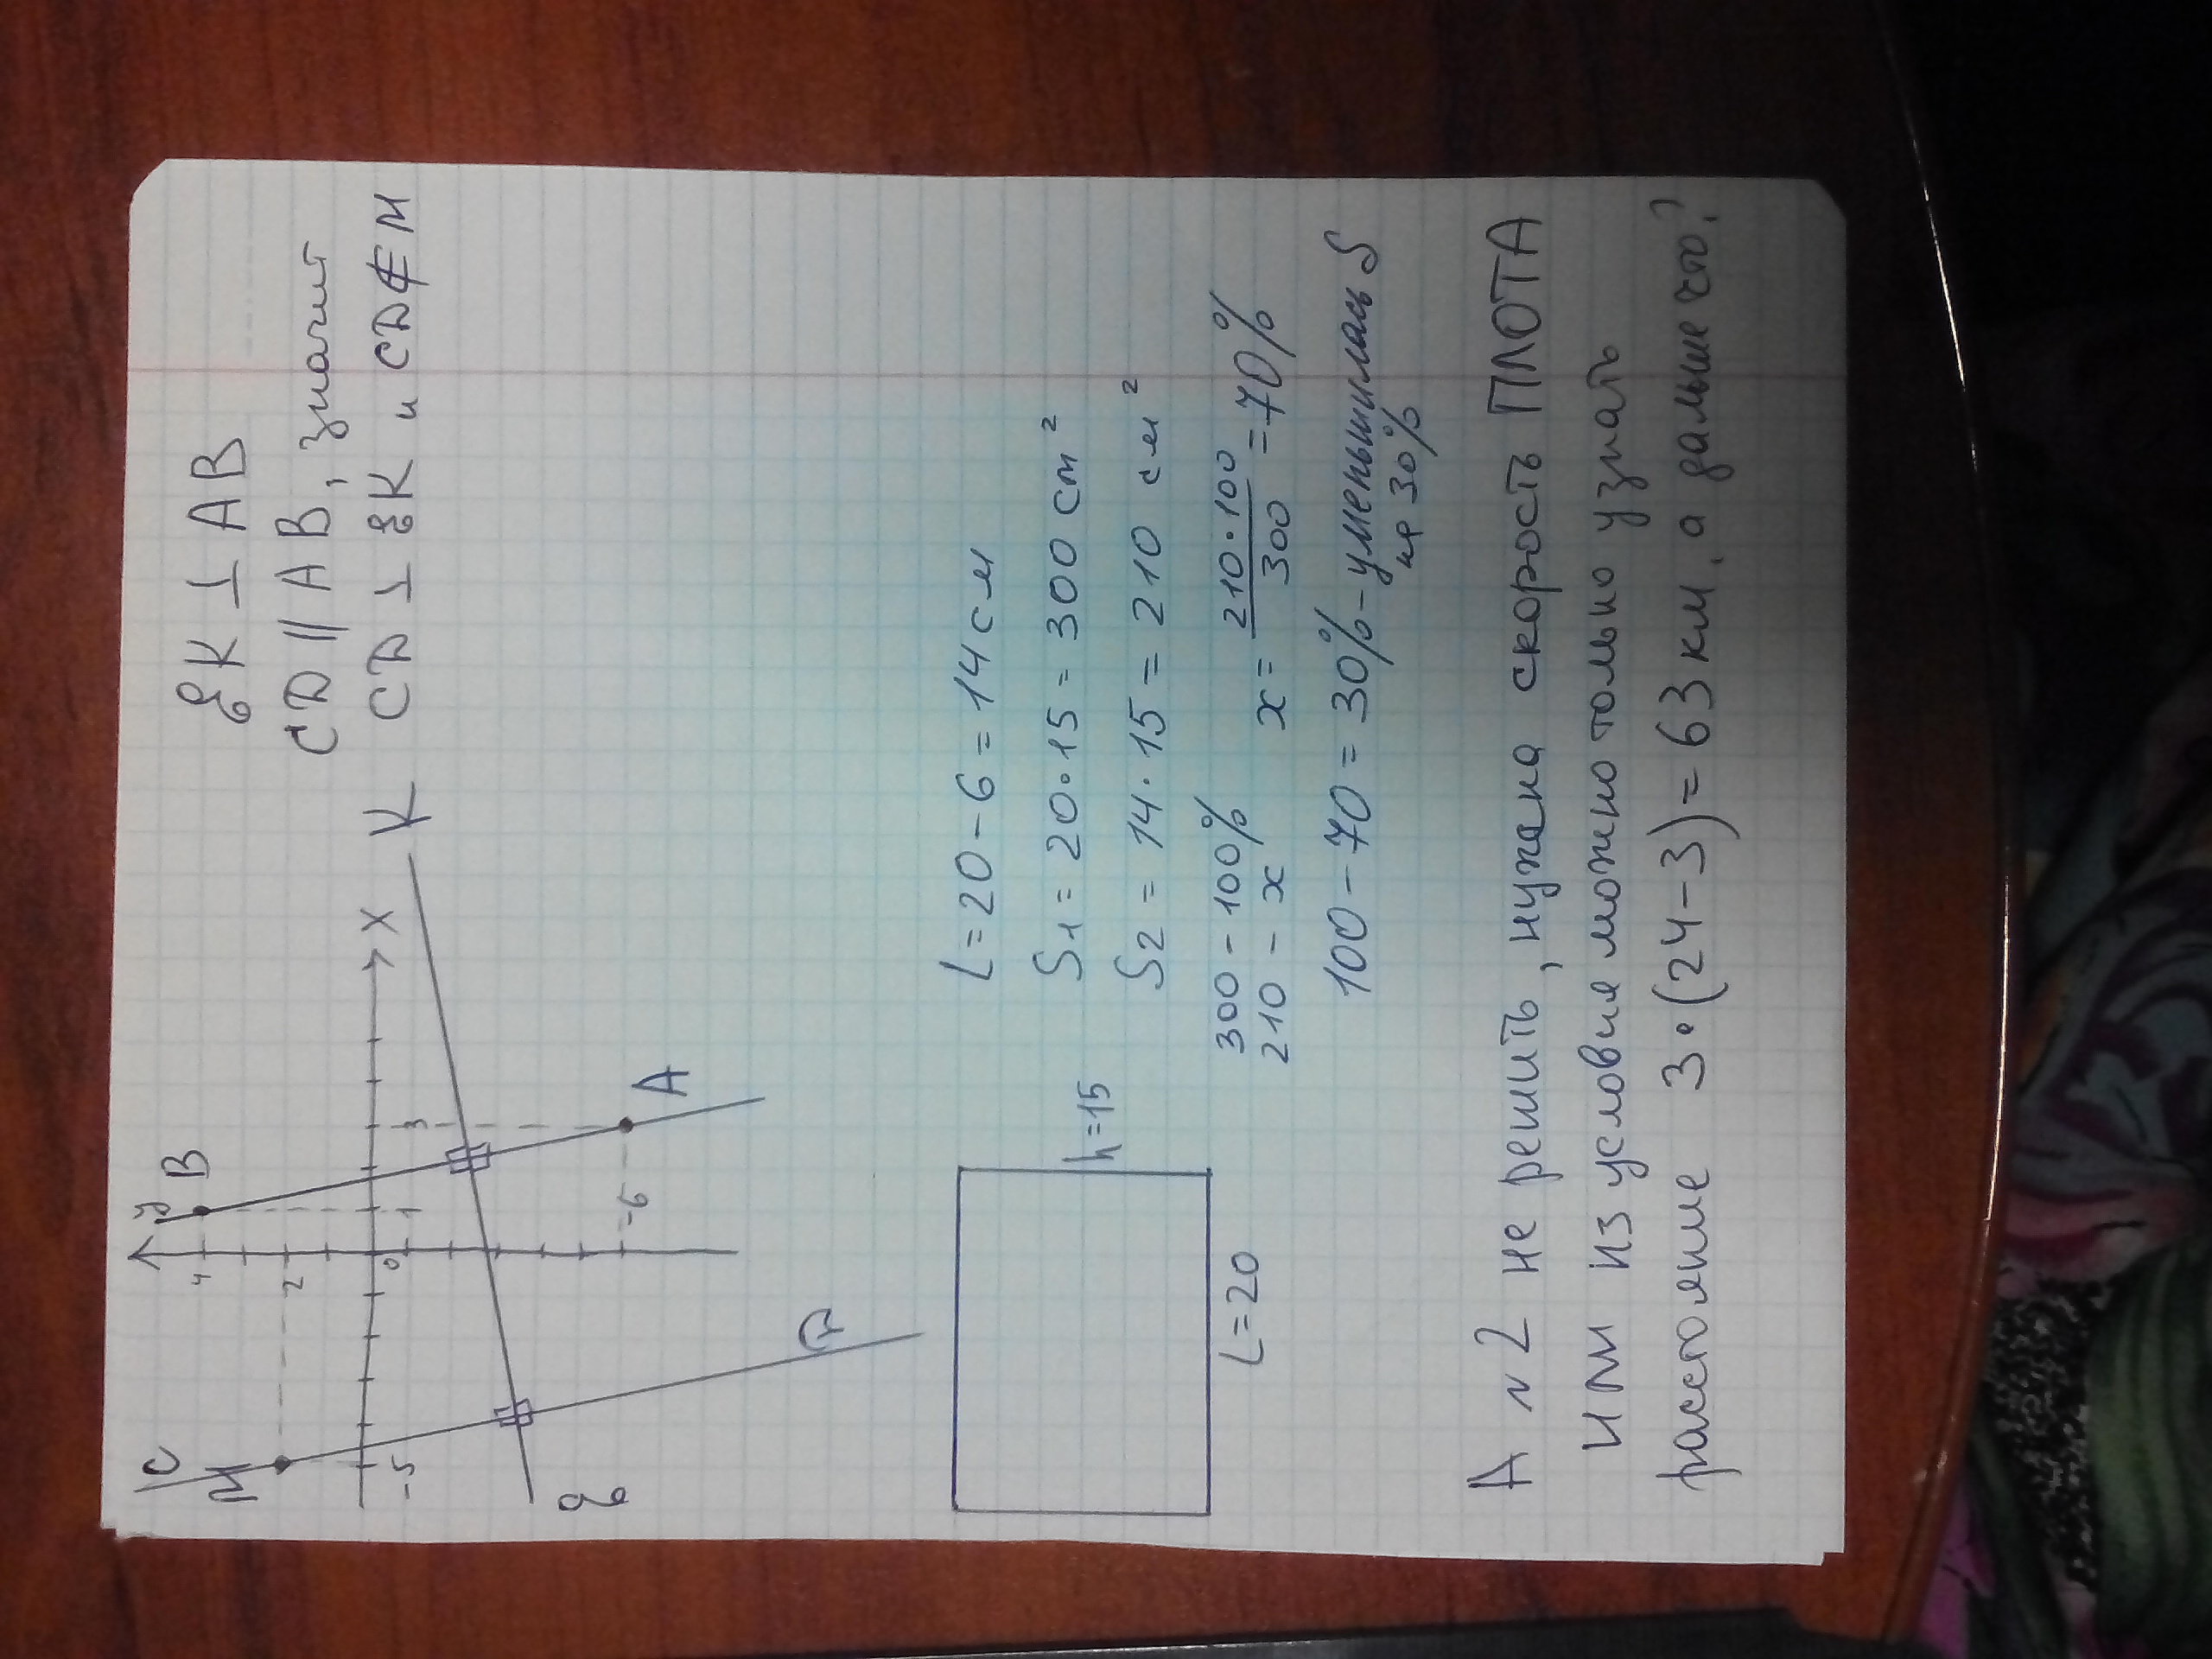 ℰK ⊥ AB
CD || AB, значит
CD ⊥ ℰK и CD ∉ M
y
B
C
M
4
2
0
1
3
-5
-6
x
K
A
D
ℰ
L = 20 - 6 = 14 см
S1 = 20 · 15 = 300 cm²
S2 = 14 · 15 = 210 см²
h=15
L=20
300 - 100%
210 - x
x = 210·100/300 = 70%
100 - 70 = 30% - уменьшилась S
на 30%
А № 2 не решить, нужна скорость ПЛОТА
ИЛИ из условия можно только узнать
расстояние 3·(24-3) = 63 км, а дальше что?